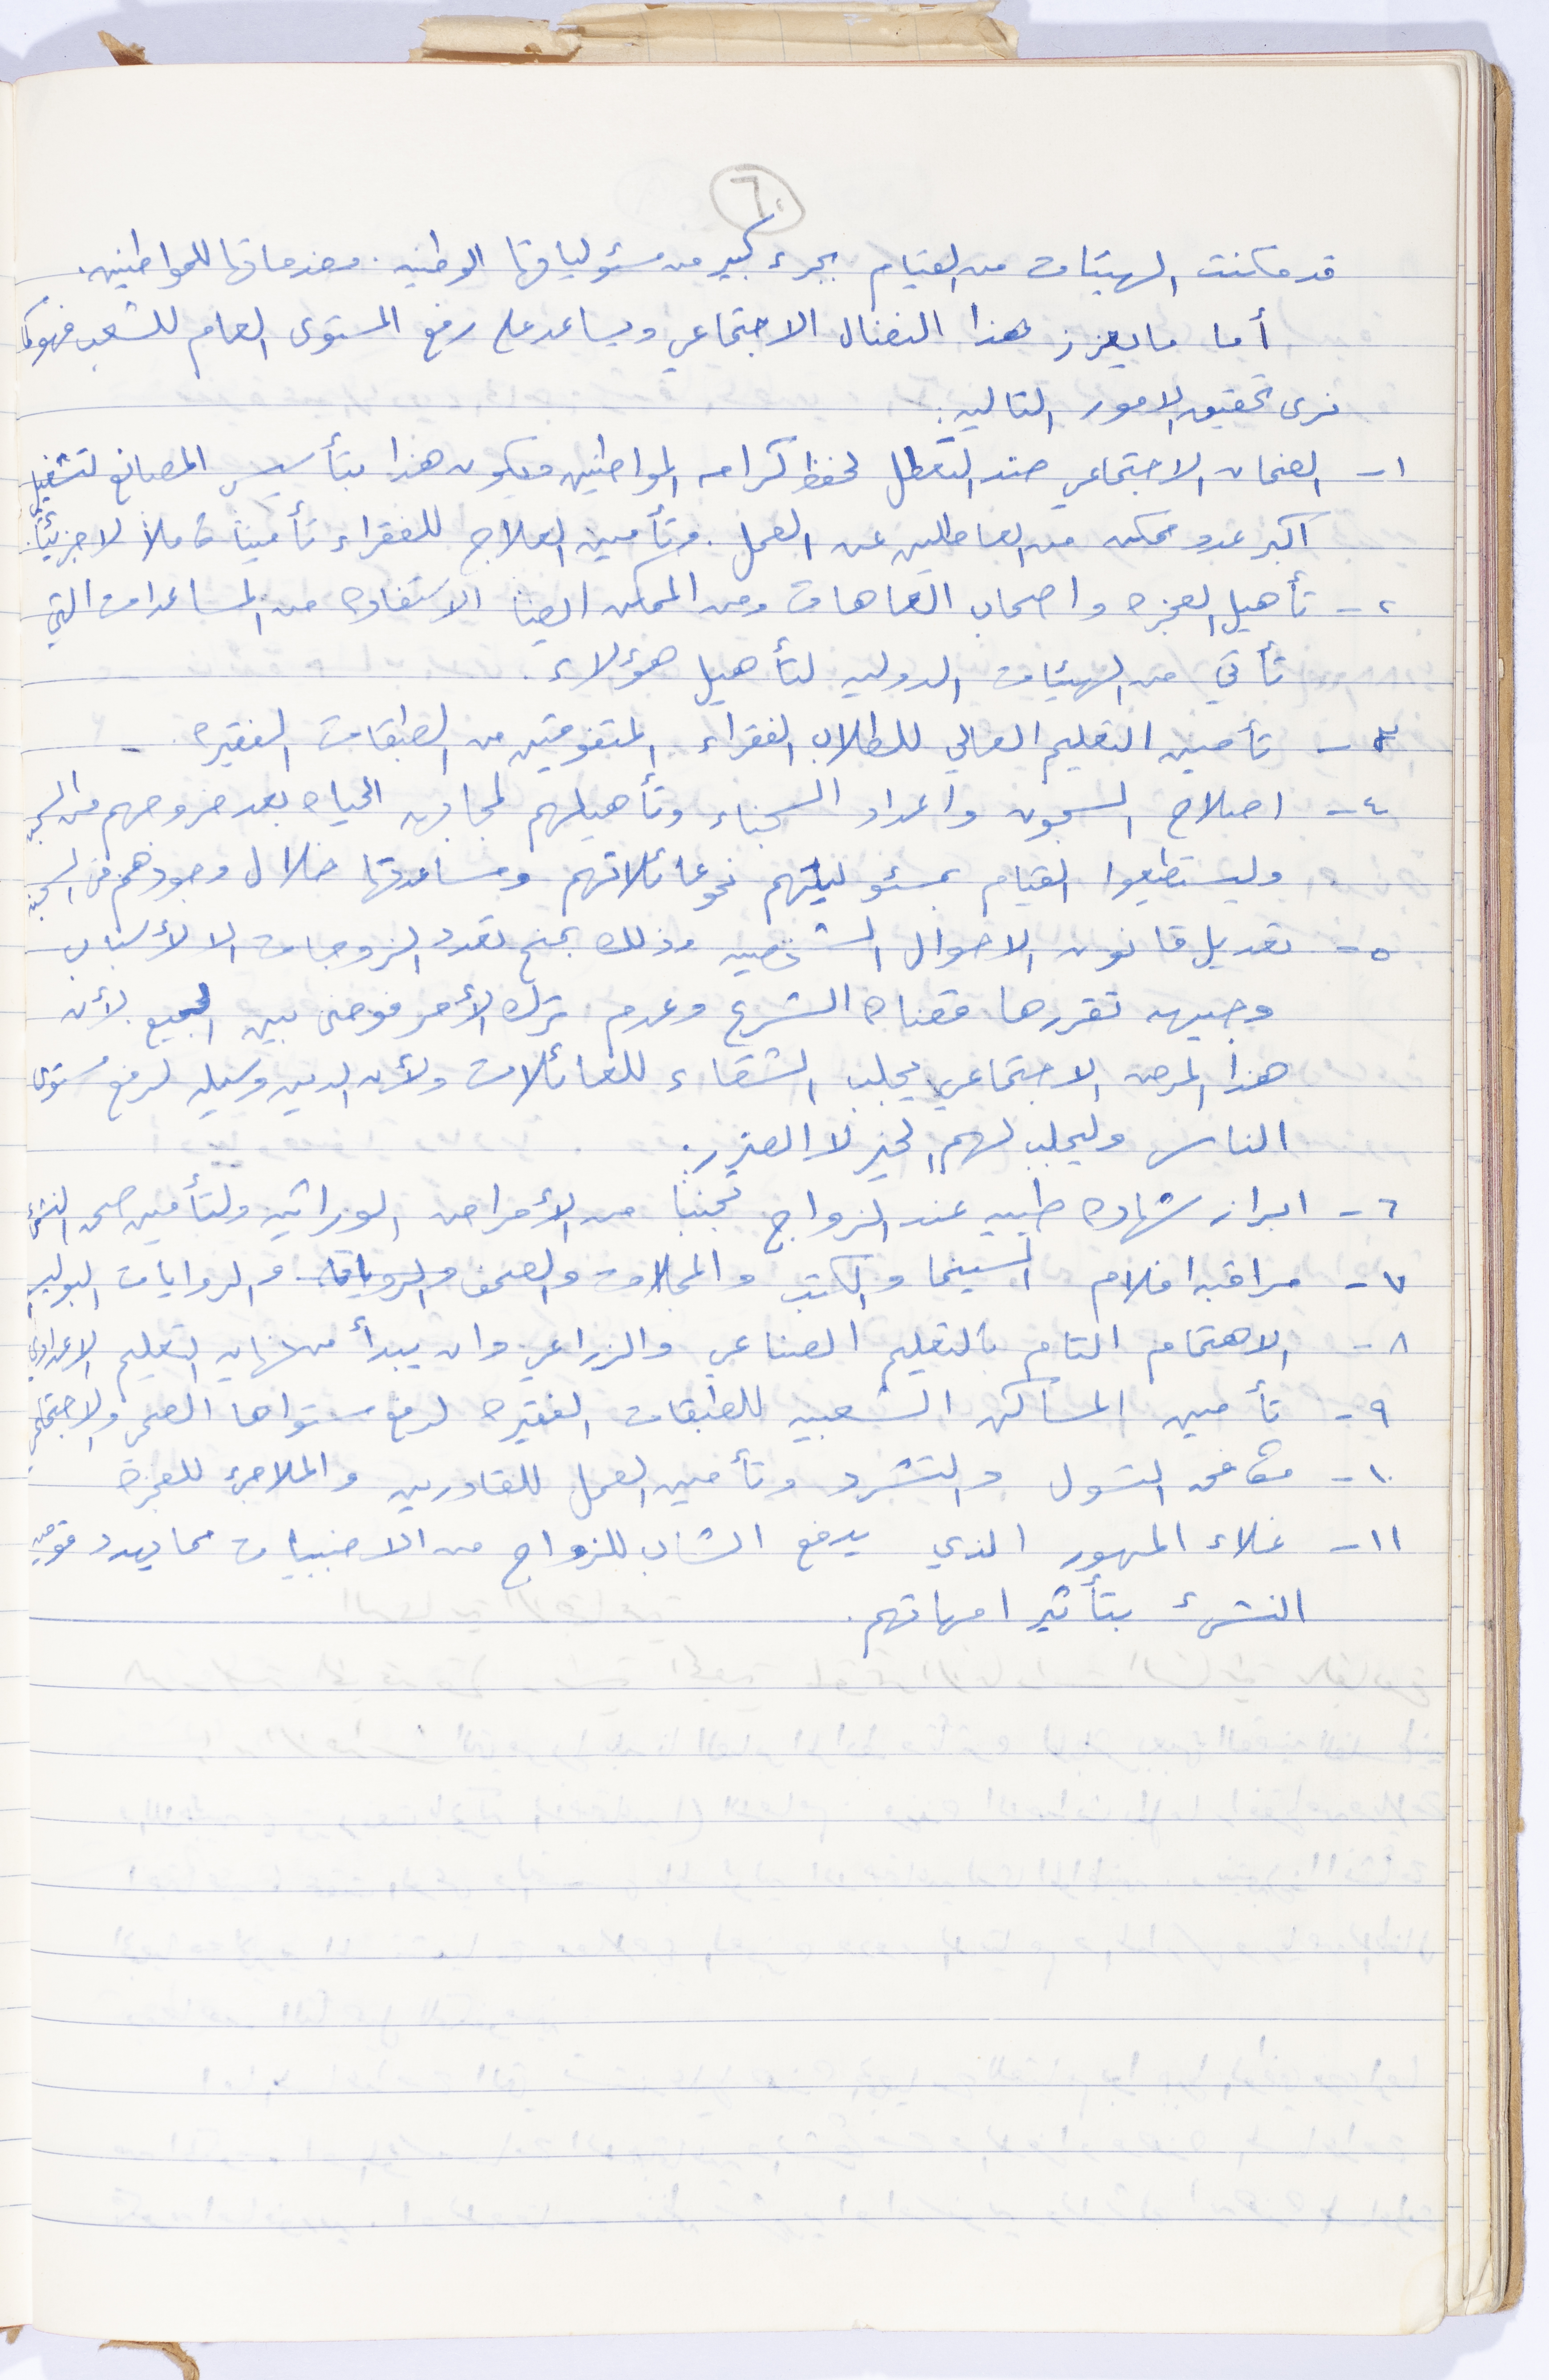 ٦٠
قد مكنت الهيئات من القيام بجزء كبير من مسئولياتها الوطنيه. وخدماتها للمواطنين.
أما ما يعزز هذا النضال الاجتماعي ويساعد على رفع المستوى العام للشعب فهو كما
نرى تحقيق الامور التاليه:
١- الضمان الاجتماعي ضد التعطل لحفظ كرامه المواطنين ويكون هذا بتأسيس المصانع لتشغيل
اكبر عدد ممكن من العاطلين عن العمل. وتأمين العلاج للفقراء تأميناً كاملاً لا جزئياً.
٢- تأهيل العجزه واصحاب العاهات ومن الممكن ايضا الاستفاده من المساعدات التي
تأتي من الهيئات الدوليه لتأهيل هؤلاء.
٣- تأمين التعليم العالي للطلاب الفقراء المتفوقين من الطبقات الفقيره.
٤- اصلاح السجون واعداد السجناء وتأهيلهم لمجابهه الحياه بعد خروجهم من السجن
وليستطيعوا القيام بمسئولياتهم نحو عائلاتهم ومساعدتها خلال وجودهم في السجن
٥- تعديل قانون الاحوال الشخصيه وذلك بمنع تعدد الزوجات الا لأسباب
وجيهه تقررها قضاة الشرع وعدم ترك الأمر فوضى بين الجميع. لأن
هذا المرض الاجتماعي يجلب الشقاء للعائلات ولأن الدين وسيله لرفع مستوى
الناس وليجلب لهم الخير لا الضرر.
٦- ابراز شهاده طبيه عند الزواج تجنباً من الأمراض الوراثيه ولتأمين صحه النشئ
٧- مراقبه افلام السينما والكتب والمجلات والصحف والروايات البوليسيه
٨- الاهتمام التام بالتعليم الصناعي والزراعي وان يبدأ من نهايه التعليم الاعدادي
٩- تأمين المساكن الشعبيه للطبقات الفقيره لرفع مستواها الصحي والاجتماعي
١٠- مكافحه التسول والتشرد وتأمين العمل للقادرين والملاجئ للعجزة
١١- غلاء المهور الذي يدفع الشاب للزواج من الاجنبيات مما يهدد قوميه
النشىء بتأثير امهاتهم.